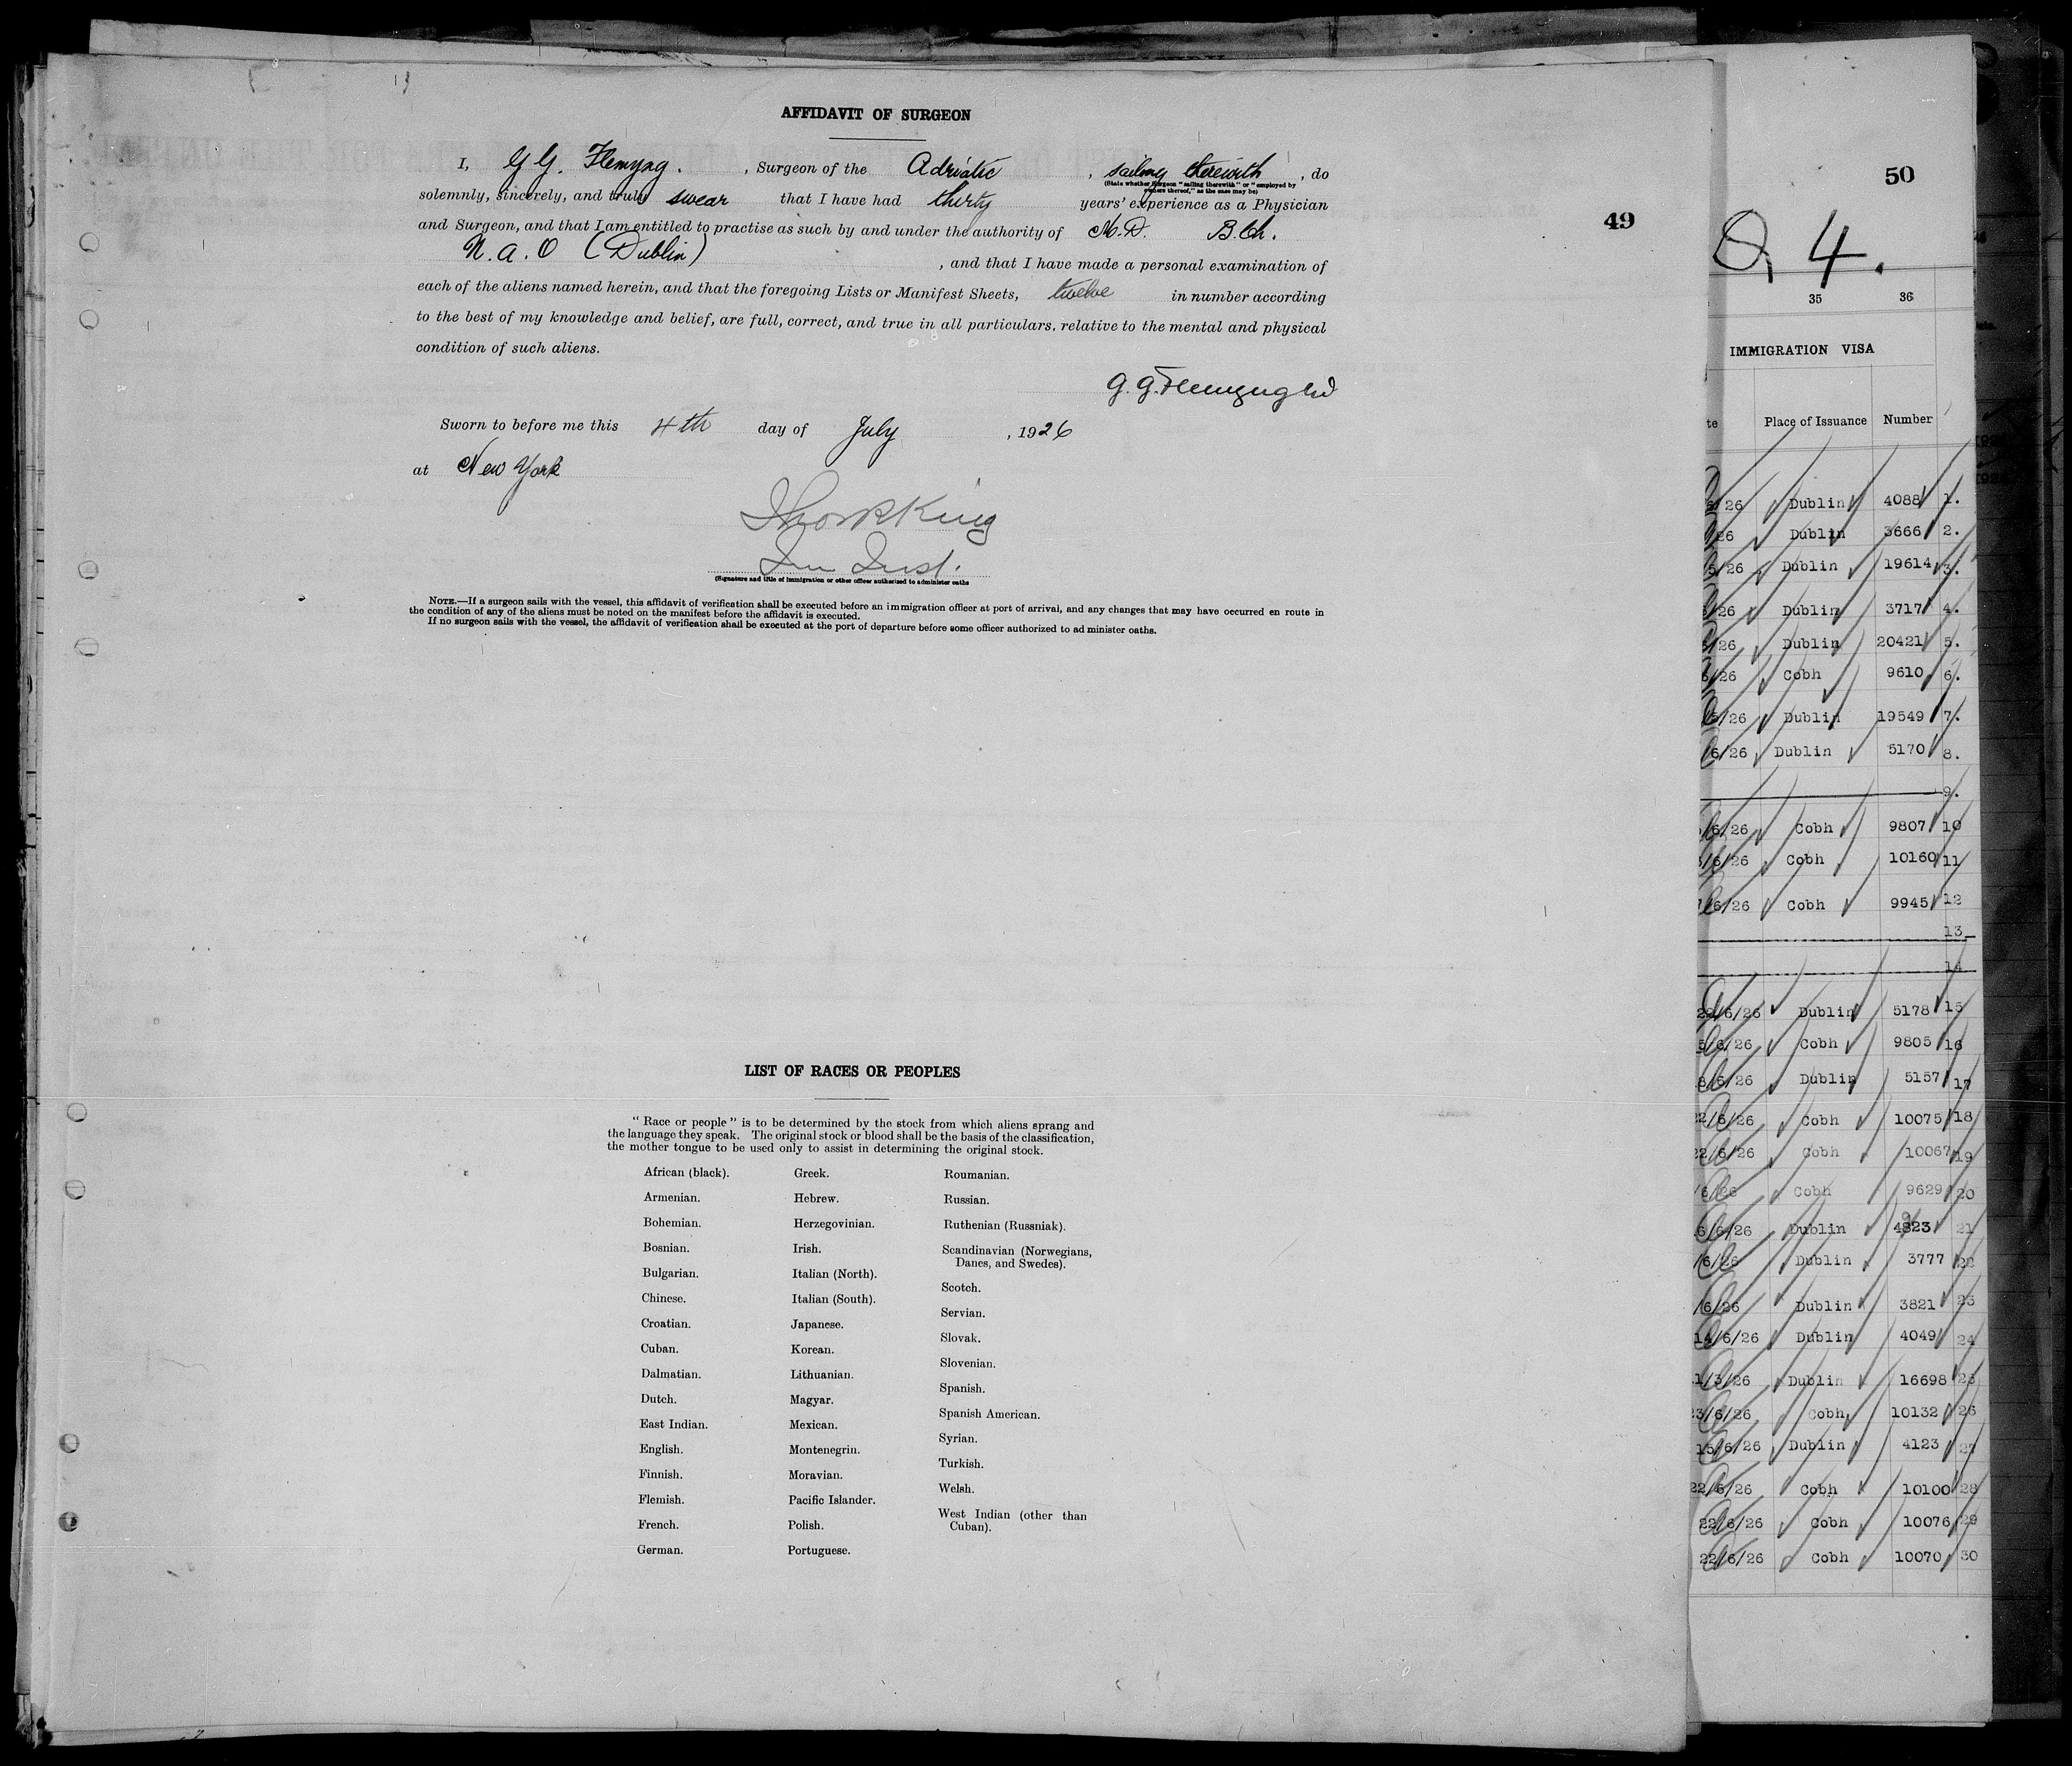 AFFIDAVIT OF SURGEON
I, G G. Flemyng. , Surgeon of the Adriatic , sailing therewith , do
(State whether Surgeon "sailing therewith" or "employed by
owners thereof," as the case may be)
solemnly, sincerely, and truly swear that I have had thirty years' experience as a Physician
and Surgeon, and that I am entitled to practise as such by and under the authority of M.D. B.Ch.
N.A.O (Dublin) , and that I have made a personal examination of
each of the aliens named herein, and that the foregoing Lists or Manifest Sheets, twelve in number according
to the best of my knowledge and belief, are full, correct, and true in all particulars. relative to the mental and physical
condition of such aliens.
G. G. Flemyng
Sworn to before me this 4th day of July , 1926
at New York
King
(Signature and title of immigration or other officer authorized to administer oaths
NOTE.—If a surgeon sails with the vessel, this affidavit of verification shall be executed before an immigration officer at port of arrival, and any changes that may have occurred en route in
the condition of any of the aliens must be noted on the manifest before the affidavit is executed.
If no surgeon sails with the vessel, the affidavit of verification shall be executed at the port of departure before some officer authorized to administer oaths.
49
LIST OF RACES OR PEOPLES
"Race or people" is to be determined by the stock from which aliens sprang and
the language they speak. The original stock or blood shall be the basis of the classification,
the mother tongue to be used only to assist in determining the original stock.
African (black).
Armenian.
Bohemian.
Bosnian.
Bulgarian.
Chinese.
Croatian.
Cuban.
Dalmatian.
Dutch.
East Indian.
English.
Finnish.
Flemish.
French.
German.
Greek.
Hebrew.
Herzegovinian.
Irish.
Italian (North).
Italian (South).
Japanese.
Korean.
Lithuanian.
Magyar.
Mexican.
Montenegrin.
Moravian.
Pacific Islander.
Polish.
Portuguese.
Roumanian.
Russian.
Ruthenian (Russniak).
Scandinavian (Norwegians,
Danes, and Swedes).
Scotch.
Servian.
Slovak.
Slovenian.
Spanish.
Spanish American.
Syrian.
Turkish.
Welsh.
West Indian (other than
Cuban).
50
4.
35 36
IMMIGRATION VISA
te Place of Issuance Number
/26 Dublin 4088 1.
26 Dublin 3666 2.
/26 Dublin 19614 3.
/26 Dublin 3717 4.
/26 Dublin 20421 5.
/26 Cobh 9610 6.
/26 Dublin 19549 7.
6/26 Dublin 5170 8.
9.
/6/26 Cobh 9807 10
/6/26 Cobh 10160 11
/6/26 Cobh 9945 12
13
14
22/6/26 Dublin 5178 15
5/6/26 Cobh 9805 16
8/6/26 Dublin 5157 17
22/6/26 Cobh 10075 18
22/6/26 Cobh 10067 19
/6/26 Cobh 9629 20
6/6/26 Dublin 4823 21
/6/26 Dublin 3777 22
/6/26 Dublin 3821 23
14/6/26 Dublin 4049 24
1/3/26 Dublin 16698 25
23/6/26 Cobh 10132 26
15/6/26 Dublin 4123 27
22/6/26 Cobh 10100 28
22/6/26 Cobh 10076 29
22/6/26 Cobh 10070 30